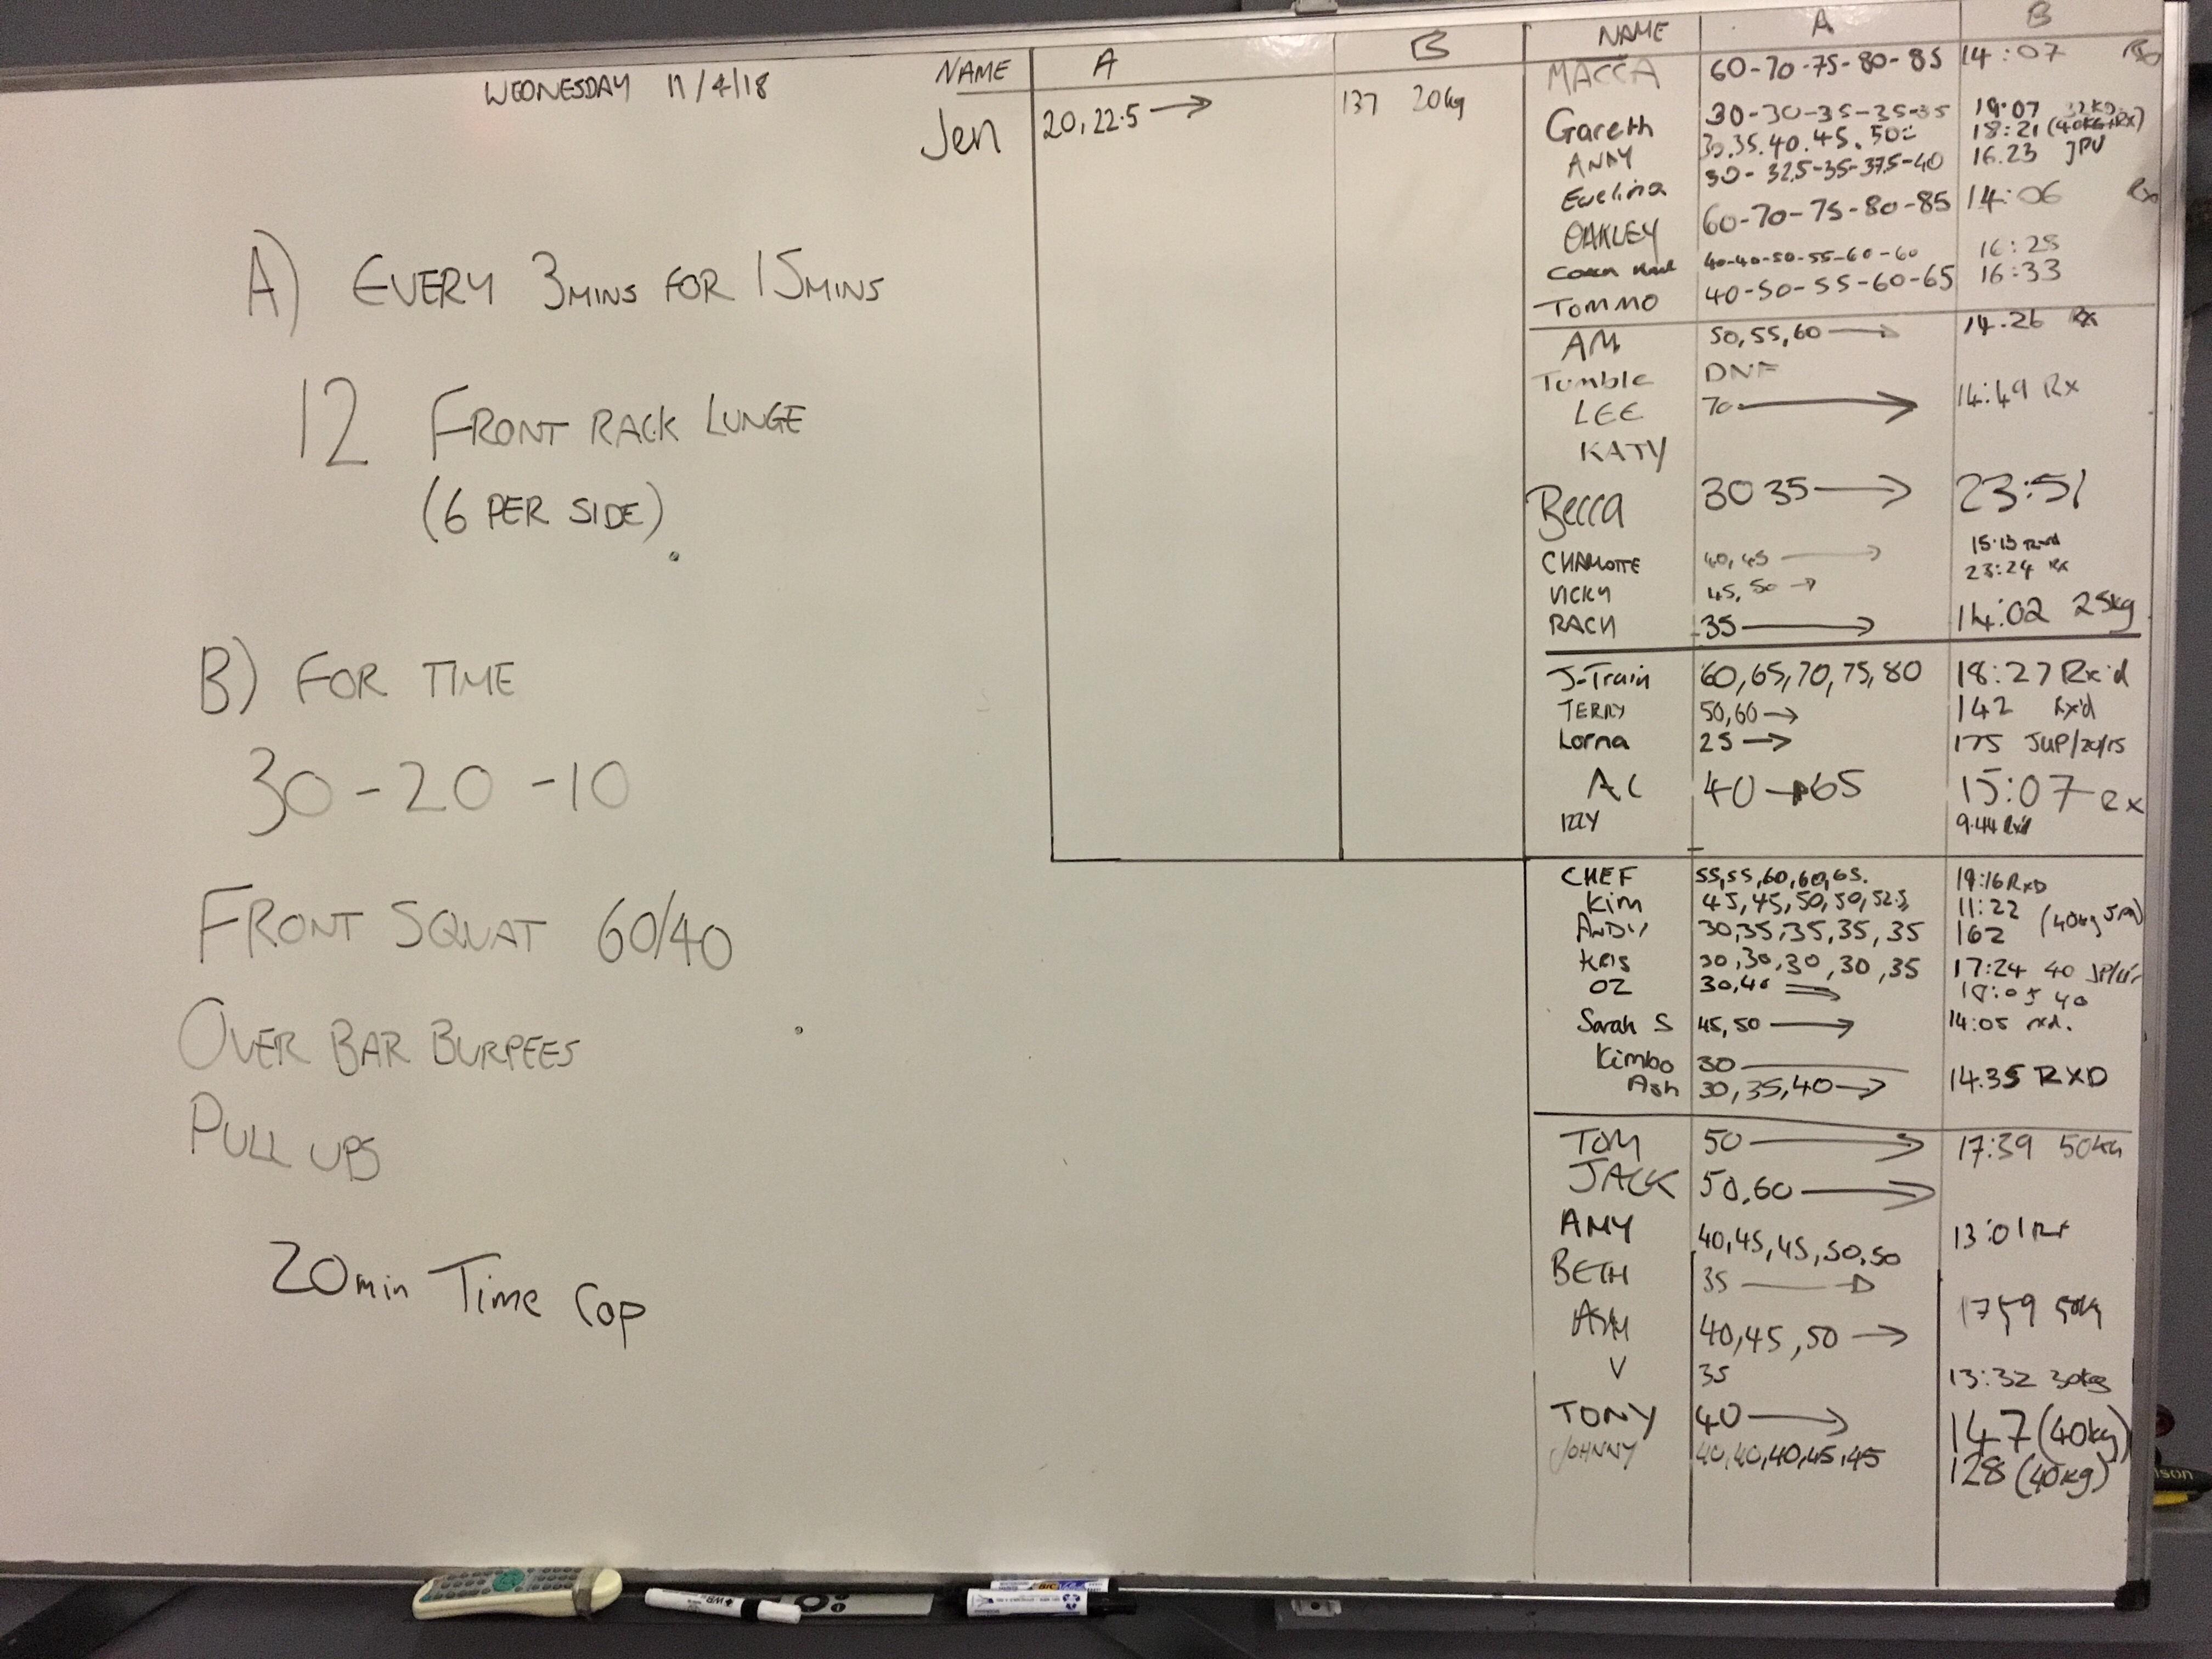 WEDNESDAY 11/4/18
A) EVERY 3MINS FOR 15MINS
12 FRONT RACK LUNGE
(6 PER SIDE)
B) FOR TIME
30-20-10
FRONT SQUAT 60/40
OVER BAR BURPEES
PULL UPS
20min Time Cap
NAME A B
Jen 20, 22.5 → 137 20kg
NAME A B
MACCA 60-70-75-80-85 14:07 Rx
Gareth 30-30-35-35-35 19:07
ANDY 30.35.40.45.50 18:21
Ewelina 30-32.5-35-37.5-40 16.23
OAKLEY 60-70-75-80-85 14:06 Rx
40-40-50-55-60-60 16:25
TOMMO 40-50-55-60-65 16:33
AM 50,55,60 → 14.26 Rx
Tumble DNF
LEE 70 → 14:49 Rx
KATY
Becca 30 35 → 23:51
CHARLOTTE 40,45 → 15:13
VICKY 45,50 → 23:24 Rx
RACH 35 → 14:02 25kg
J-Train 60,65,70,75,80 18:27 Rx'd
TERRY 50,60 → 142 Rx'd
Lorna 25 → 175 JUP/20/15
AL 40 → 65 15:07 Rx
IZZY 9.44 Rx'd
CHEF 55,55,60,60,65. 19:16 RXD
Kim 45,45,50,50,52.5 11:22
ANDY 30,35,35,35,35 162 (40kg
KRIS 30,30,30,30,35 17:24 40
OZ 30,40 → 40
Sarah S 45,50 → 14:05 rxd.
Kimbo 30
Ash 30,35,40 → 14.35 RXD
TOM 50 → 17:39 50kg
JACK 50,60 →
AMY 40,45,45,50,50 13:01 Rx
BETH 35 →
40,45,50 → 1759 50kg
V 35 13:32 30kg
TONY 40 → 147 (40kg)
JOHNNY 40,40,40,45,45 128 (40kg)